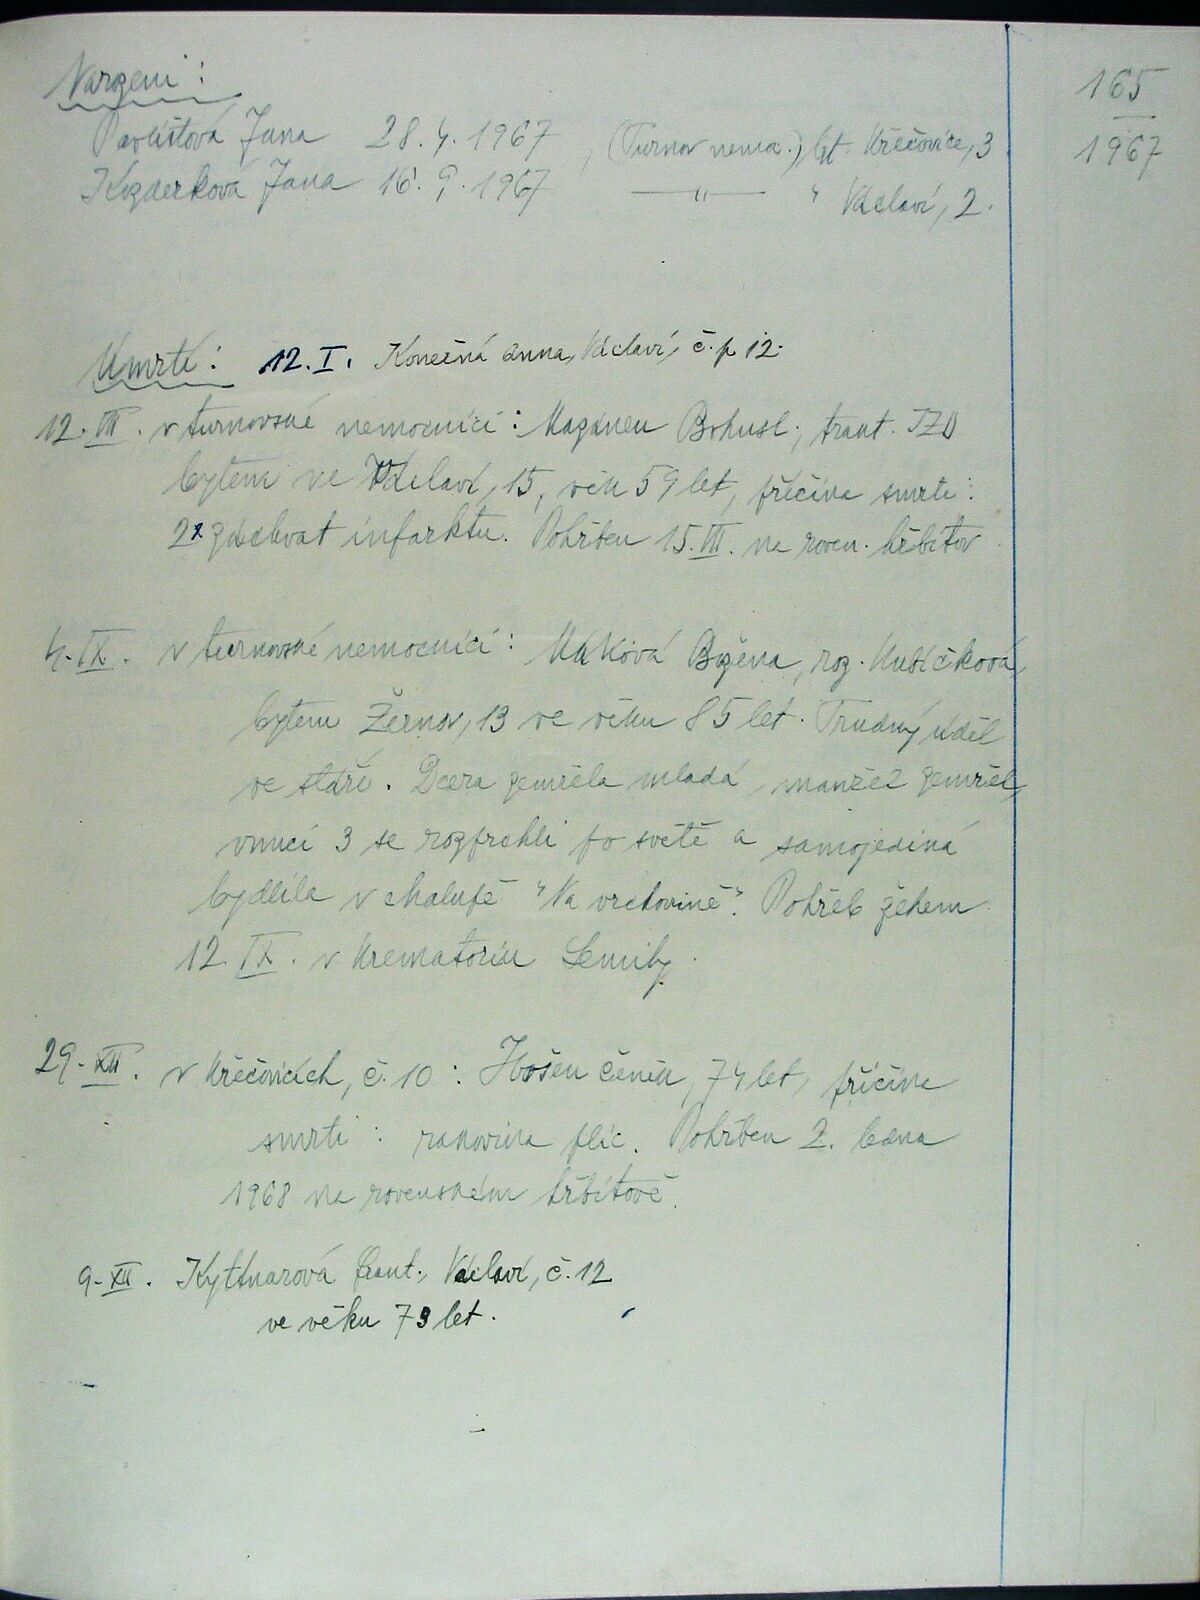 Narození :
165
Pavlištová Jana 28.4.1967, (Turnov nemoc.) byt. Křečovice, 3
1967
Jana 16.9.1967 —"— " Václaví, 2.
Úmrtí : 12.I. Konečná Anna, Václaví, č.p 12.
12.VII. v turnovské nemocnici : Bohusl., trakt. JZD
bytem ve Václaví, 15, věk 59 let, příčina smrti :
2x záchvat infarktu. Pohřben 15.VII. na roven. hřbitov
4.IX. v turnovské nemocnici : Máková Božena, roz. Kubíčková,
bytem Žernov, 13 ve věku 85 let. Trudný úděl
ve stáří. Dcera zemřela mladá, manžel zemřel,
vnuci 3 se rozprchli po světě a samojediná
bydlila v chalupě "Na vrchovině". Pohřeb žehem
12.IX. v krematoriu Semily.
29.XII. v Křečovicích, č.10 : Čeněk, 74 let, příčina
smrti : rakovina plic. Pohřben 2. ledna
1968 na rovenském hřbitově.
9.XII. Kyttnarová Frant., Václaví, č.12
ve věku 79 let.